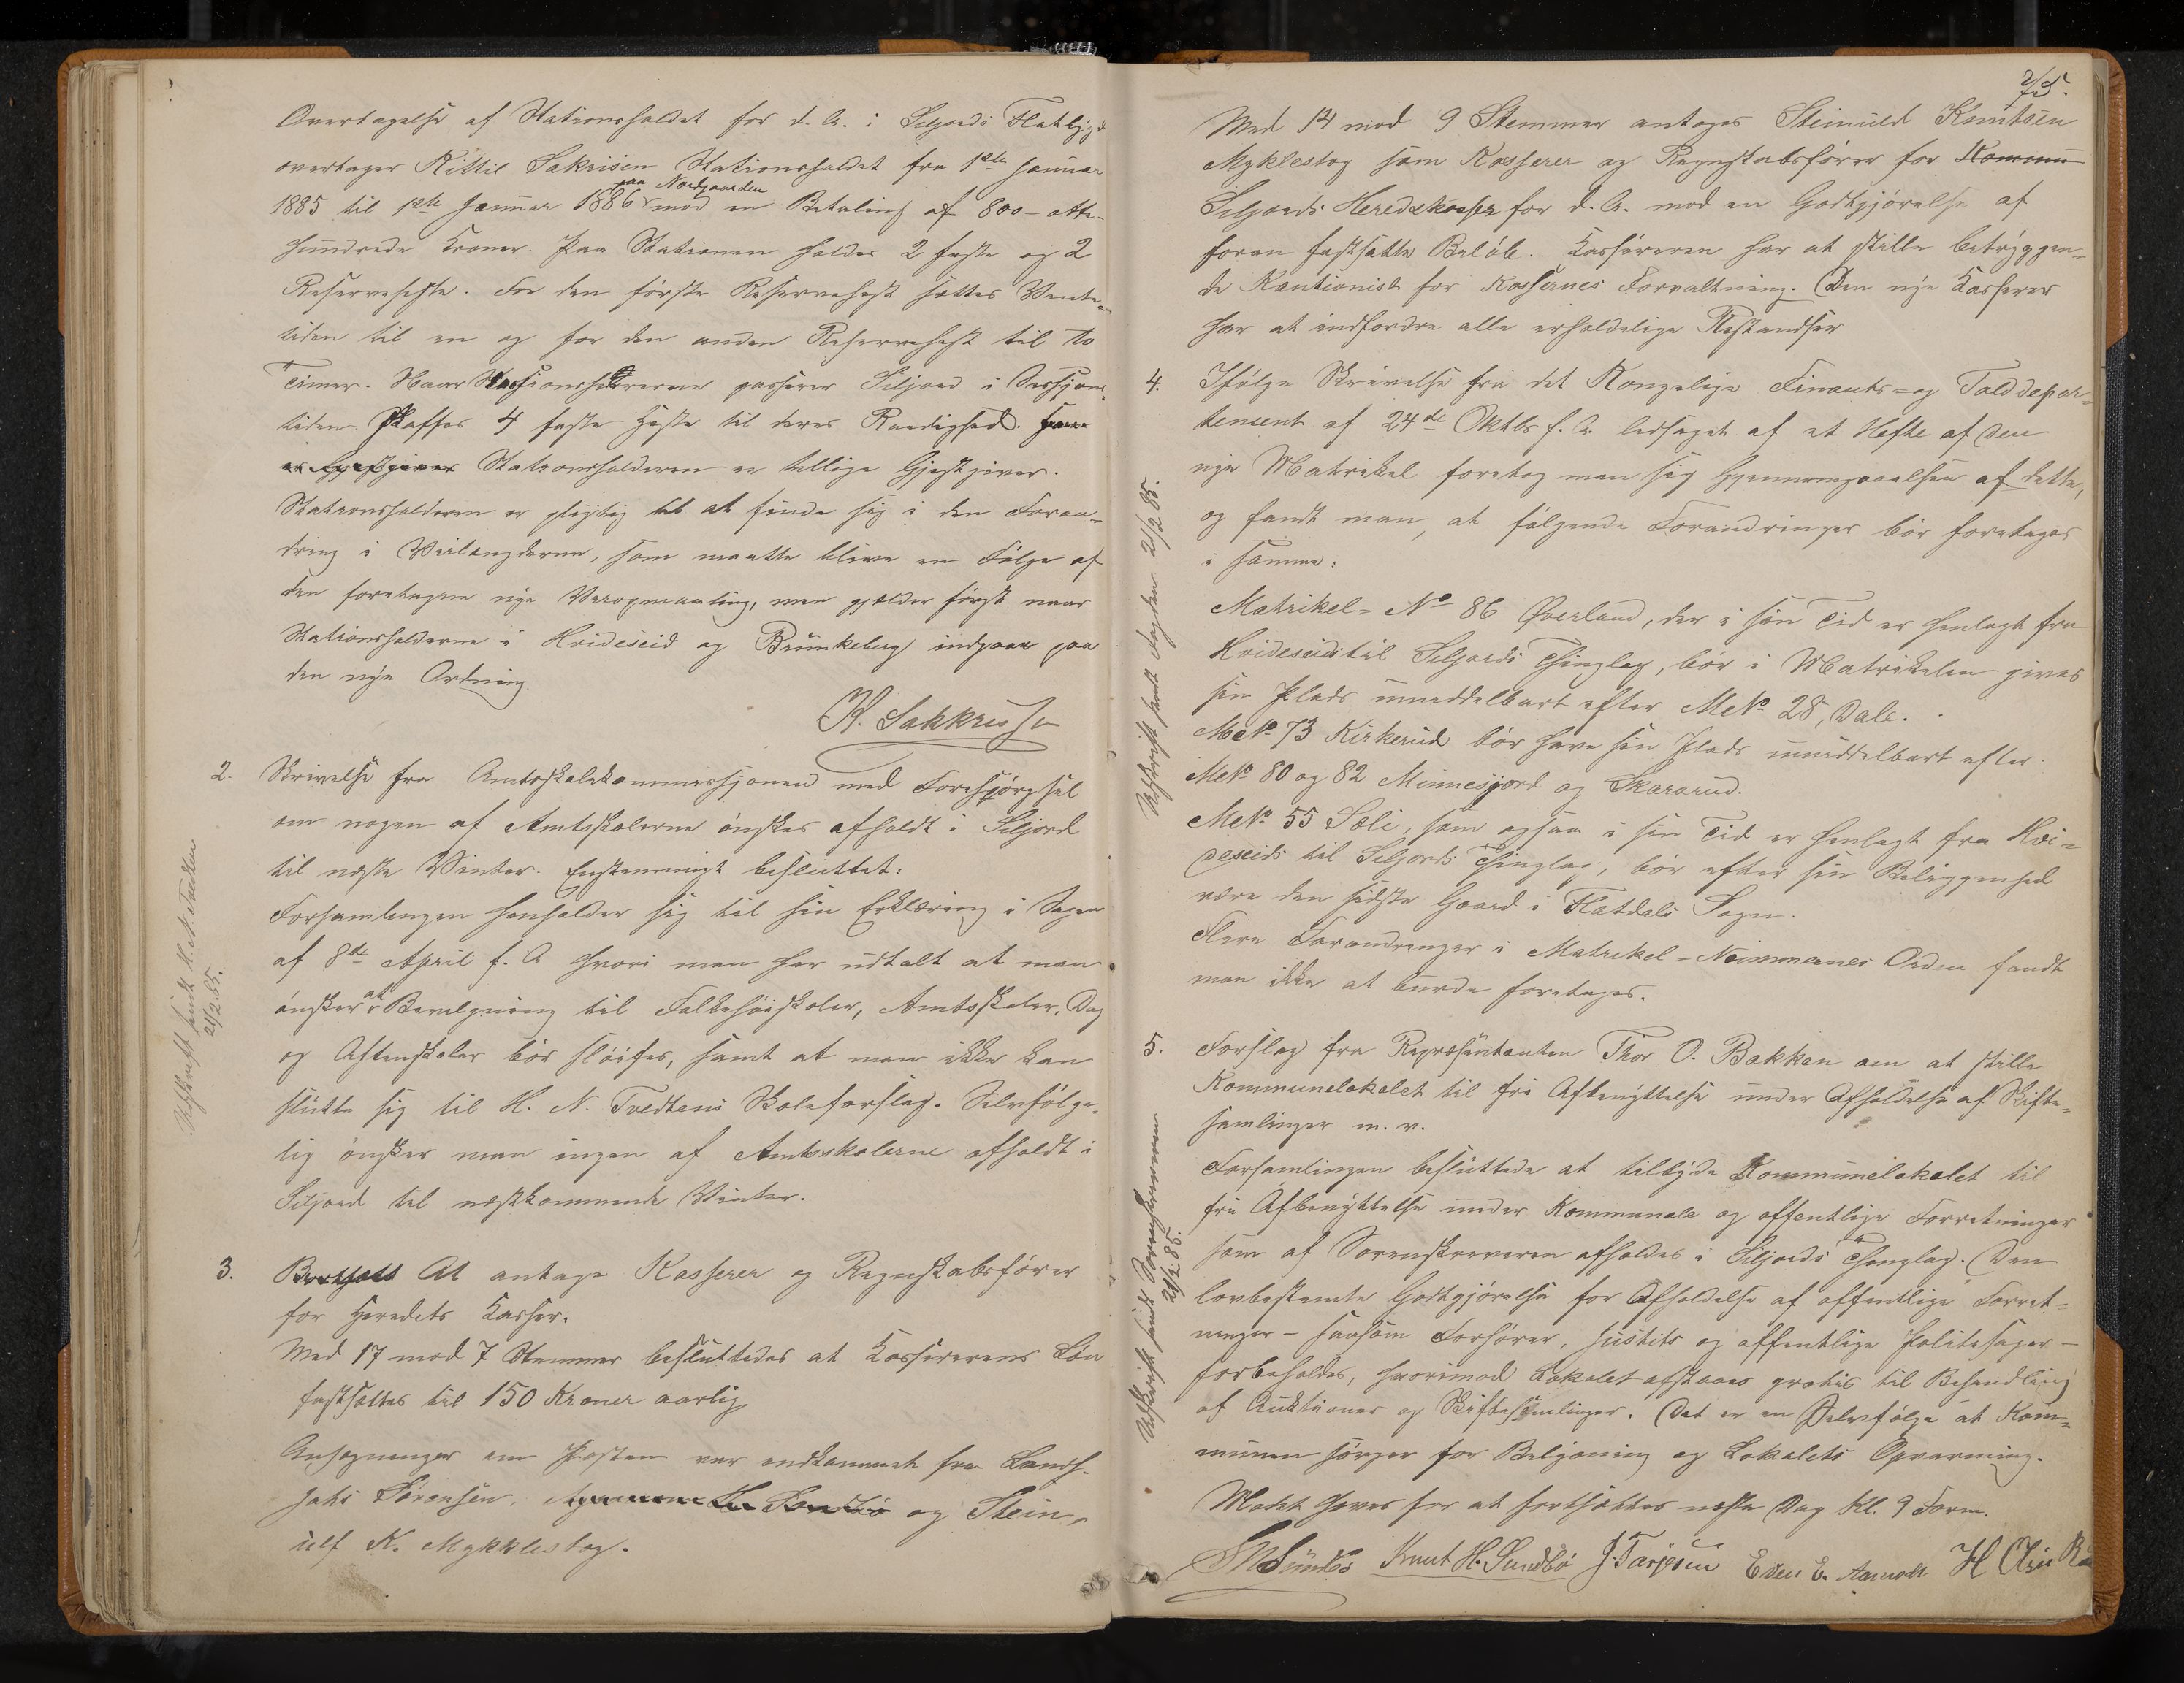 Overtagelse af Stationsholdet for d. A. i Seljords Flatbygd
overtager Kittil Sakrisen Stationsholdet fra 1ste Januar
1885 til 1ste Januar 1886 paa Nordgaarden mod en Betaling af 800 – otte-
hundrede Kroner. Paa Stationen holdes 2 faste og 2
Reserveheste. For den første Reservehest sættes Vente-
tiden til en og for den anden Reservehest til to
Timer. Naar passerer Siljord i Sessjons-
tiden skaffes 4 faste Heste til deres Raadighed.
Stationsholderen er tillige Gjestgiver.
Stationsholderen er pligtig til at finde sig i den Foran-
dring i Veilængderne, som maatte blive en Følge af
den foretagne nye Veiopmaaling, men gjælder først naar
Stationsholderne i Hvideseid og Brunkeberg indgaar paa
den nye Ordning.
K. Sakkrisse
2. Skrivelse fra Amtsskolekommissjonen med Forespørgsel
om nogen af Amtsskolerne ønskes afholdt i Siljord
til næste Vinter. Enstemmigt besluttet:
Forsamlingen henholder sig til sin Erklæring i Sagen
af 8de April f. A. hvori man har udtalt at man
ønsker at Bevilgning til Folkehøiskoler, Amtsskoler, Dag
og Aftenskoler bør sløifes, samt at man ikke kan
slutte sig til H. N. Tvedtens Skoleforslag. Selvfølge-
lig ønsker man ingen af Amtsskolerne afholdt i
Siljord til næstkommende Vinter.
Udskrift sendt H. N. Tvedten
21/2 85.
3. At antage Kasserer og Regnskabsfører
for Heredets Kasser.
Med 17 mod 7 Stemmer besluttedes at Kassererens Løn
fastsættes til 150 Kroner aarlig
Ansøgninger om Posten var indkommet fra Lands-
Sørensen, og Stein-
ulf K. Mykklestog.
75.
Med 14 mod 9 Stemmer antoges Steinuld Knutsen
Myklestog som Kasserer og Regnskabsfører for Kommu
Seljords Heredskasser for d. A. mod en Godtgjørelse af
foran fastsatte Beløb. Kassereren har at stille betryggen-
de Kautionist for Kassernes Forvaltning. Den nye Kasserer
har at indfordre alle erholdelige Restandser
4. Ifølge Skrivelse fra det Kongelige Finants- og Tolddepar-
tement af 24de Oktbr f. A. ledsaget af et Hefte af den
nye Matrikel foretog man sig Gjennemgaaelsen af dette,
og fandt man, at følgende Forandringer bør foretages
i samme:
Matrikel-No 86 Øverland, der i sin Tid er henlagt fra
Hvideseid til Seljords Thinglag, bør i Matrikelen gives
sin Plads umiddelbart efter M.No 28, Dale.
M.No 73 Kirkerud bør have sin Plads umiddelbart efter
M.No 80 og 82 Minnesjord og Skararud.
M.No 55 Sæli, som ogsaa i sin Tid er henlagt fra Hvi-
deseids til Seljords Thinglag, bør efter sin Beliggenhed
være den sidste Gaard i Flatdals Sogn.
Flere Forandringer i Matrikel-Numernes Orden fandt
man ikke at burde foretages.
Udskrift sendt Fogden 21/2 85.
5. Forslag fra Repræsentanten Thor O. Bakken om at stille
Kommunelokalet til fri Afbenyttelse under Afholdelse af Skifte-
samlinger m. v.
Forsamlingen besluttede at tilbyde Kommunelokalet til
fri Afbenyttelse under Kommunale og offentlige Forretninger
som af Sorenskriveren afholdes i Siljords Thinglag. Den
lovbestemte Godtgjørelse for Afholdelse af offentlige Forret-
ninger – saasom Forhører, Justits og offentlige Politisager –
forbeholdes, hvorimod Lokalet afstaaes gratis til Behandling
af Auktioner og Skiftesamlinger. Det er en Selvfølge at Kom-
munen sørger for Belysning og Lokalets Opvarming.
Udskrift sendt Sorenskriveren
21/2 85.
Mødet hæves for at fortsættes næste Dag Kl. 9 Form.
Knut H. Sundbø J. Tarjesen Even E. H